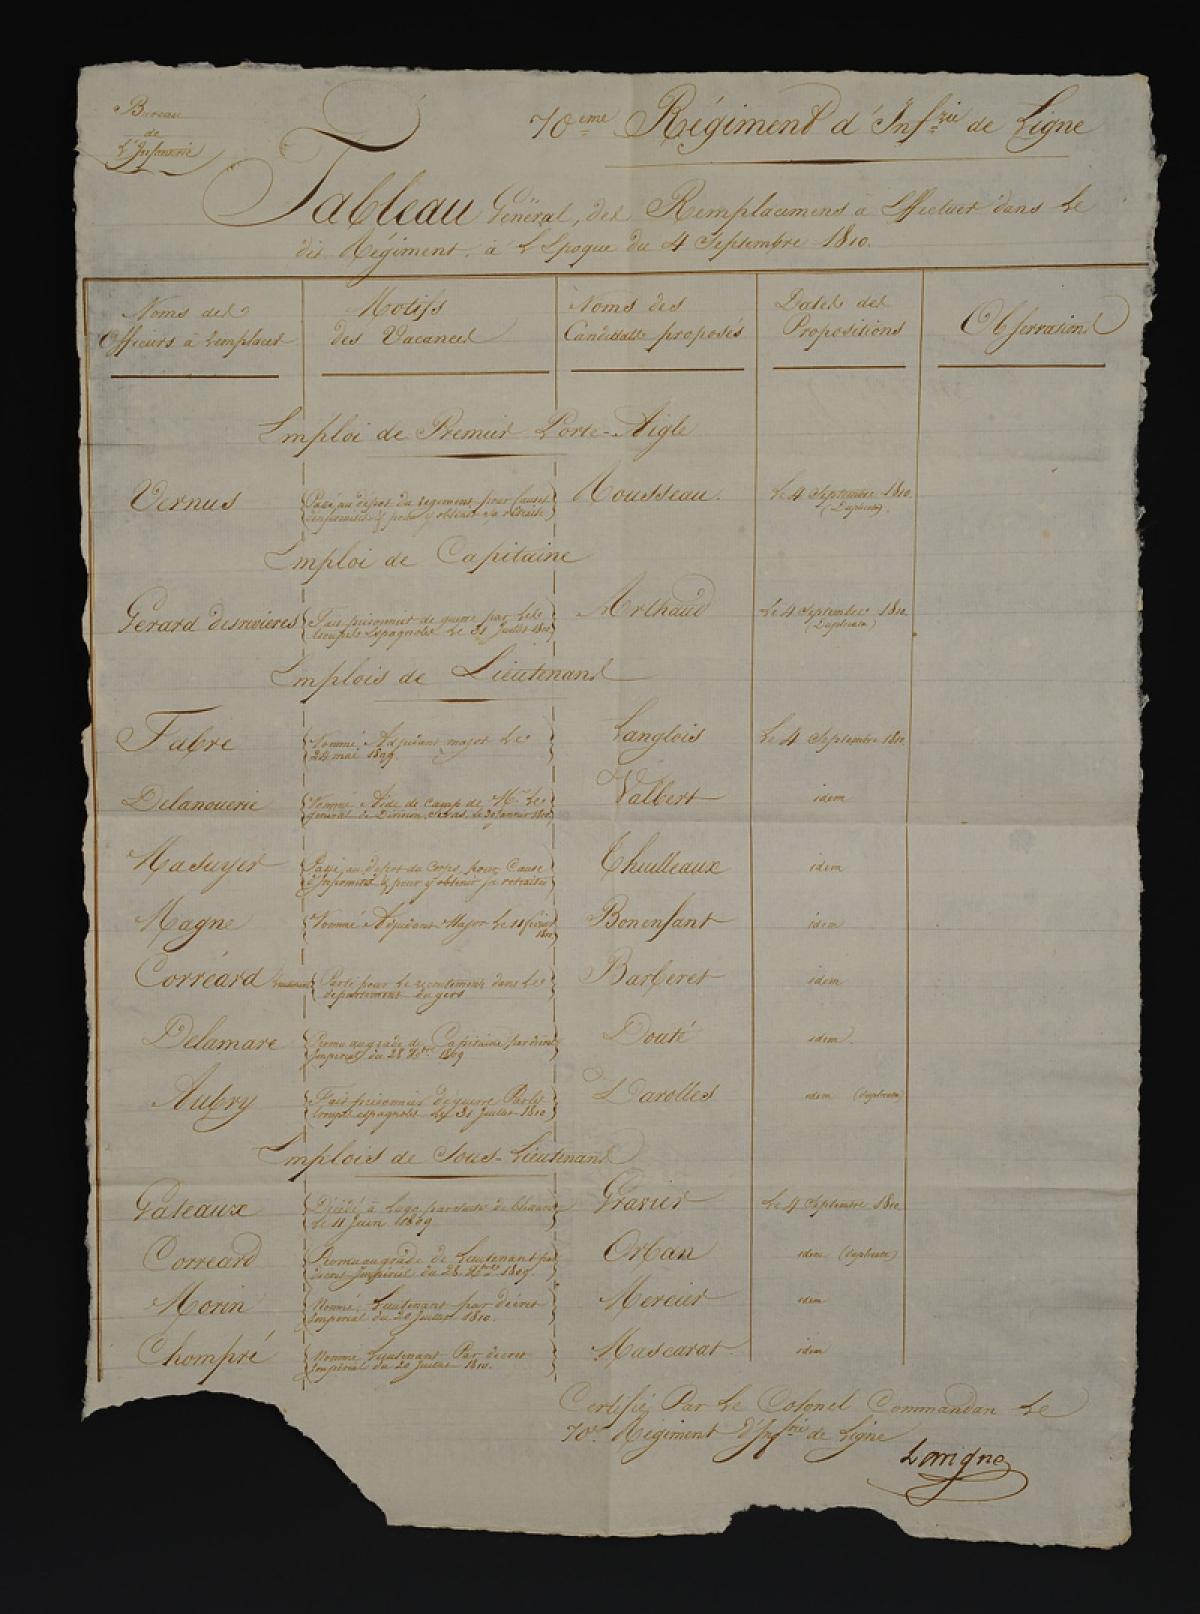 Bureau
de
L'Infanterie
70eme Régiment d'Infrie de Ligne
Tableau Général, des Remplacemens à Effectuer dans Le
dit Régiment, à L'Epoque du 4 Septembre 1810.
Noms des
Officiers à remplacer
Motifs
des Vacances
Noms des
Candidats proposés
Dates des
Propositions
Observations
Emploi de Premier Porte-Aigle
Vernus
Passé au dépôt du régiment pour Causes
d'infirmités & pour y obtenir sa retraite
Mousseau.
Le 4 Septembre 1810.
(Duplicata).
Emploi de Capitaine
Gérard desrivières
Fait prisonnier de guerre par les
troupes Espagnoles Le 31 Juillet 1810
Arthaud
Le 4 Septembre 1810
(Duplicata)
Emplois de Lieutenant
Fabre
Nommé Adjudant major Le
24 mai 1809.
Langlois
Le 4 Septembre 1810
Delanouerie
Nommé Aide de Camp de Mr. Le
général de Division, Seras, le 30 Janvier 1810
Valbert
idem
Masuyer
Passé au dépot du Corps, pour Cause
d'Infirmités & pour y obtenir sa retraite
Thuilleaux
idem
Magne
Nommé Adjudant Major Le 11 février
1810
Bonenfant
idem
Corréard
Parti pour Le recrutement dans Le
departement du gers
Barberet
idem
Delamare
Promu au grade de Capitaine, par décret
Impérial du 28 Xbre 1809
Douté
idem.
Aubry
Fait prisonnier de guerre Par les
troupes espagnoles Le 31 Juillet 1810
Darolles
idem (duplicata)
Emplois de Sous-Lieutenant
Gateaux
Décédé à Lugo par suite de blessures
Le 11 Juin 1809
Gravier
Le 4 Septembre 1810
Corréard
Promu au grade de Lieutenant par
décret Impérial du 28 Xbre 1809.
Orban
idem (duplicata)
Morin
Nommé Lieutenant par décret
Impérial du 20 Juillet 1810.
Mercier
idem
Chompré
Nommé Lieutenant Par décret
Impérial du 20 Juillet 1810.
Mascarat
idem
Certifié Par Le Colonel Commandan Le
70e Régiment d'Infrie de Ligne
Lavigne